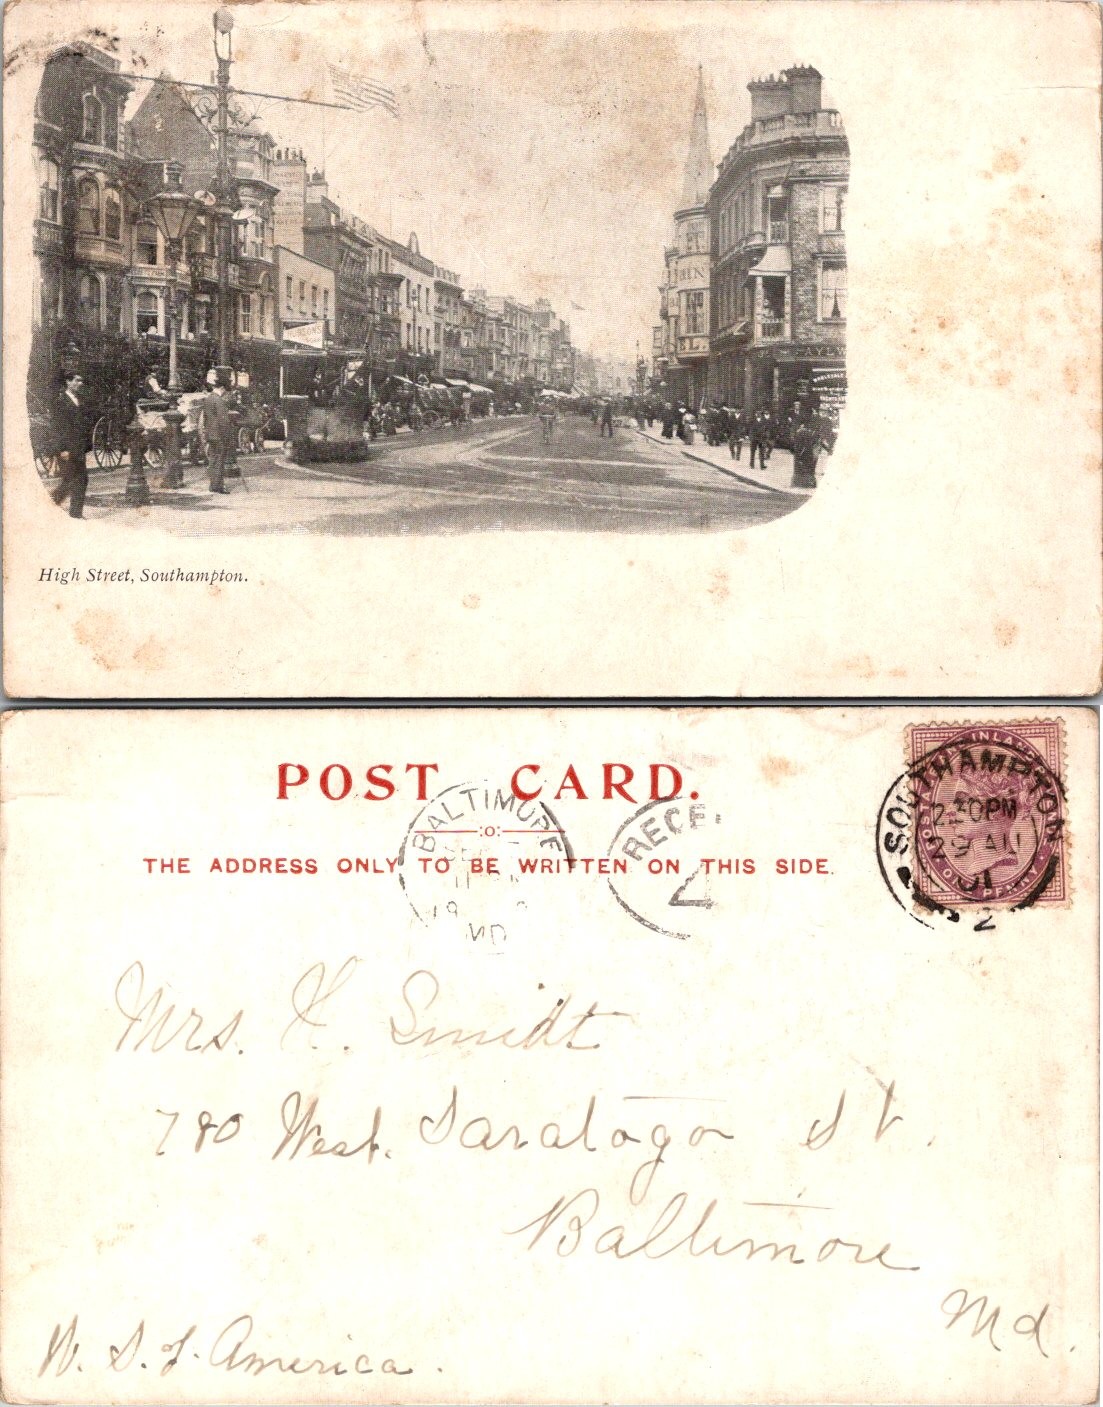 High Street, Southampton.
POST CARD.
THE ADDRESS ONLY TO BE WRITTEN ON THIS SIDE.
BALTIMORE
MD
RECE
4
SOUTHAMPTON
2.30PM
29 AU
01
2
Mrs. H. Smidt
780 West. Saratoga St.
Baltimore
Md.
U. S. of America.